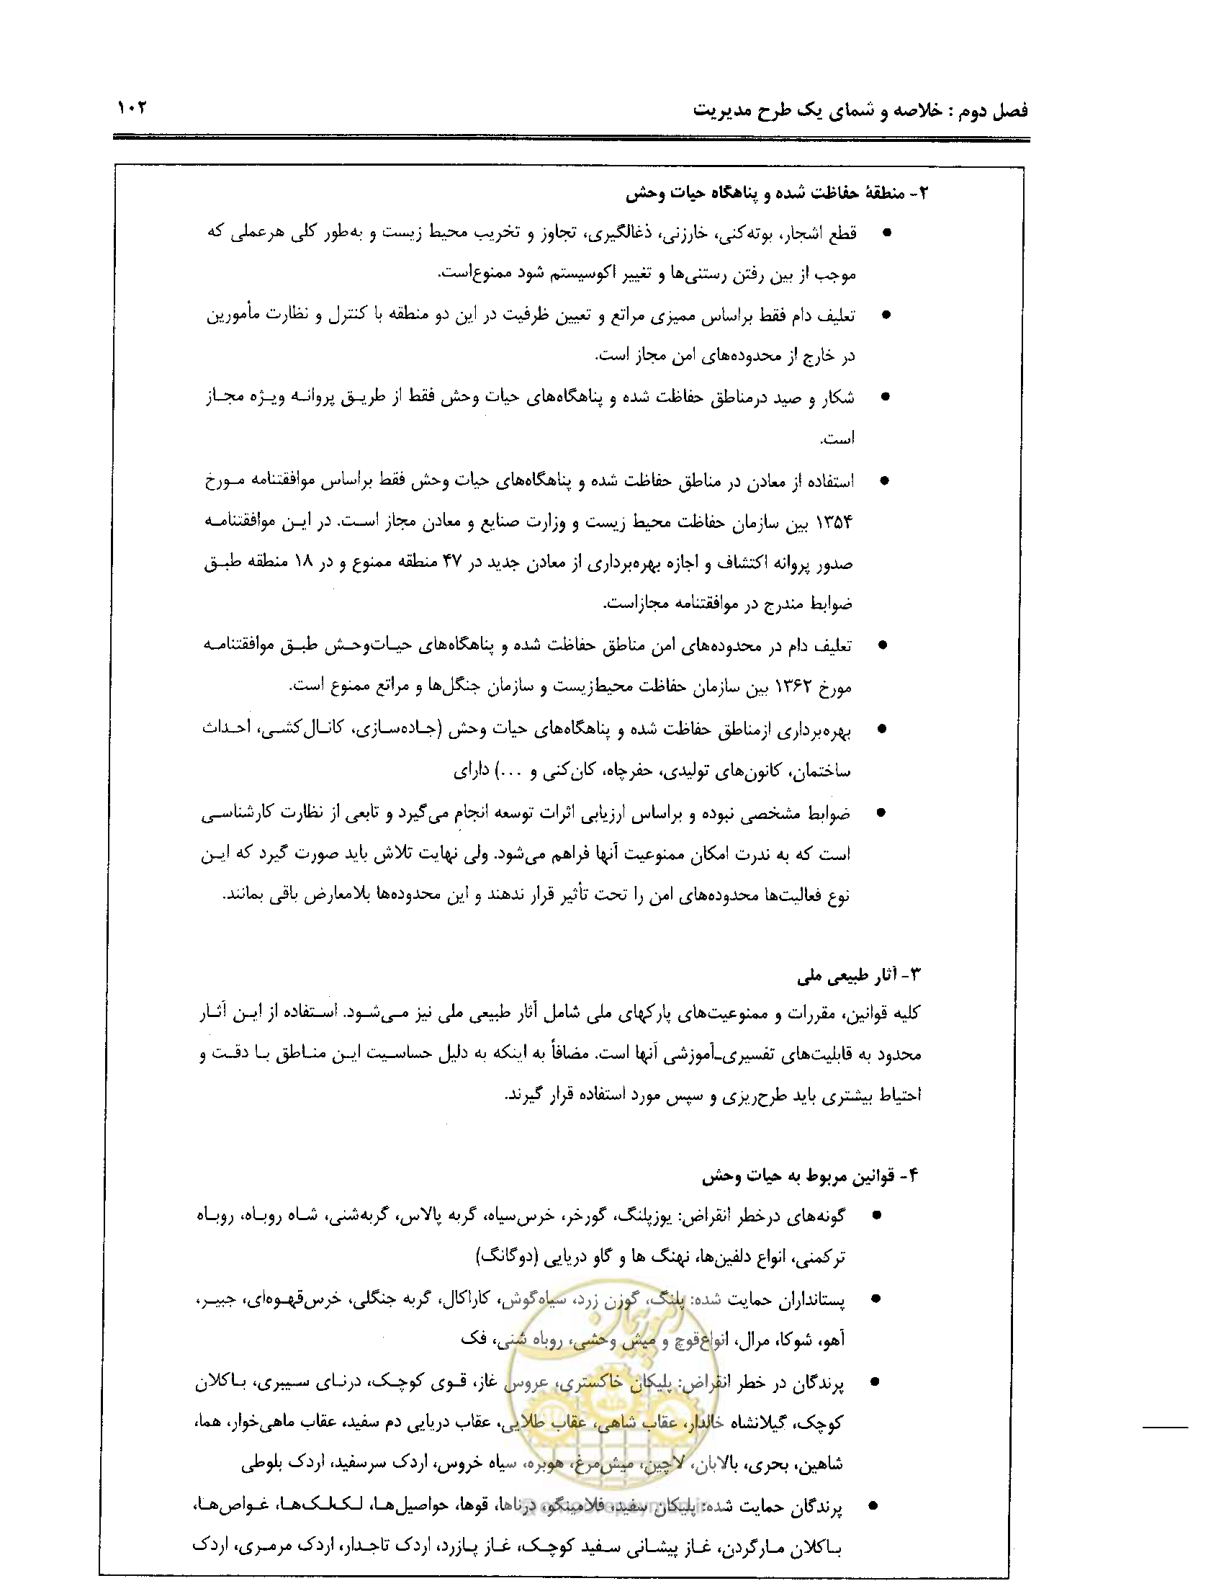 فصل دوم : خلاصه و شمای یک طرح مدیریت ۱۰۲
۲- منطقۀ حفاظت شده و پناهگاه حیات وحش
● قطع اشجار، بوته‌کنی، خارزنی، ذغالگیری، تجاوز و تخریب محیط زیست و به‌طور کلی هرعملی که
موجب از بین رفتن رستنی‌ها و تغییر اکوسیستم شود ممنوع‌است.
● تعلیف دام فقط براساس ممیزی مراتع و تعیین ظرفیت در این دو منطقه با کنترل و نظارت مأمورین
در خارج از محدوده‌های امن مجاز است.
● شکار و صید درمناطق حفاظت شده و پناهگاه‌های حیات وحش فقط از طریـق پروانـه ویـژه مجـاز
است.
● استفاده از معادن در مناطق حفاظت شده و پناهگاه‌های حیات وحش فقط براساس موافقتنامه مـورخ
۱۳۵۴ بین سازمان حفاظت محیط زیست و وزارت صنایع و معادن مجاز اسـت. در ایـن موافقتنامـه
صدور پروانه اکتشاف و اجازه بهره‌برداری از معادن جدید در ۴۷ منطقه ممنوع و در ۱۸ منطقه طبـق
ضوابط مندرج در موافقتنامه مجازاست.
● تعلیف دام در محدوده‌های امن مناطق حفاظت شده و پناهگاه‌های حیـات‌وحـش طبـق موافقتنامـه
مورخ ۱۳۶۲ بین سازمان حفاظت محیط‌زیست و سازمان جنگل‌ها و مراتع ممنوع است.
● بهره‌برداری ازمناطق حفاظت شده و پناهگاه‌های حیات وحش (جـاده‌سـازی، کانـال‌کشـی، احـداث
ساختمان، کانون‌های تولیدی، حفرچاه، کان‌کنی و ...) دارای
● ضوابط مشخصی نبوده و براساس ارزیابی اثرات توسعه انجام می‌گیرد و تابعی از نظارت کارشناسـی
است که به ندرت امکان ممنوعیت آنها فراهم می‌شود. ولی نهایت تلاش باید صورت گیرد که ایـن
نوع فعالیت‌ها محدوده‌های امن را تحت تأثیر قرار ندهند و این محدوده‌ها بلامعارض باقی بمانند.
۳- آثار طبیعی ملی
کلیه قوانین، مقررات و ممنوعیت‌های پارکهای ملی شامل آثار طبیعی ملی نیز مـی‌شـود. اسـتفاده از ایـن آثـار
محدود به قابلیت‌های تفسیری-آموزشی آنها است. مضافاً به اینکه به دلیل حساسـیت ایـن منـاطق بـا دقـت و
احتیاط بیشتری باید طرح‌ریزی و سپس مورد استفاده قرار گیرند.
۴- قوانین مربوط به حیات وحش
● گونه‌های درخطر انقراض: یوزپلنگ، گورخر، خرس‌سیاه، گربه پالاس، گربه‌شنی، شـاه روبـاه، روبـاه
ترکمنی، انواع دلفین‌ها، نهنگ ها و گاو دریایی (دوگانگ)
● پستانداران حمایت شده: پلنگ، گوزن زرد، سیاه‌گوش، کاراکال، گربه جنگلی، خرس‌قهـوه‌ای، جبیـر،
آهو، شوکا، مرال، انواع‌قوچ و میش وحشی، روباه شنی، فک
● پرندگان در خطر انقراض: پلیکان خاکستری، عروس غاز، قـوی کوچـک، درنـای سـیبری، بـاکلان
کوچک، گیلانشاه خالدار، عقاب شاهی، عقاب طلایی، عقاب دریایی دم سفید، عقاب ماهی‌خوار، هما،
شاهین، بحری، بالابان، لاچین، میش‌مرغ، هوبره، سیاه خروس، اردک سرسفید، اردک بلوطی
● پرندگان حمایت شده: پلیکان سفید، فلامینگو، درناها، قوها، حواصیل‌هـا، لـک‌لـک‌هـا، غـواص‌هـا،
بـاکلان مـارگردن، غـاز پیشـانی سـفید کوچـک، غـاز پـازرد، اردک تاجـدار، اردک مرمـری، اردک